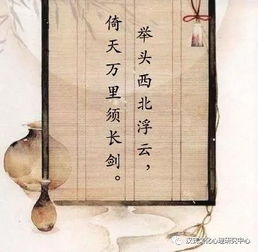 举头西北浮云，
倚天万里须长剑。
汉武文化心理研究中心